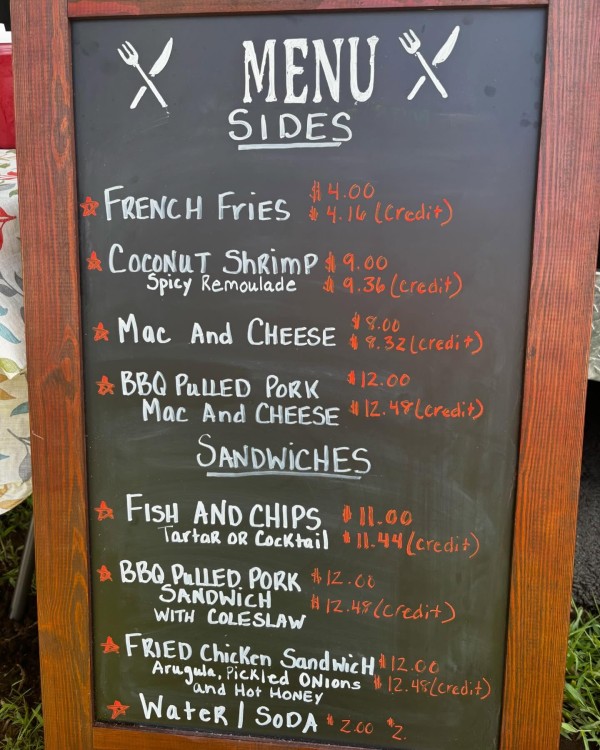 MENU
SIDES
FRENCH FRIES $4.00
$4.16 (credit)
COCONUT SHRIMP $9.00
Spicy Remoulade $9.36 (credit)
MAC AND CHEESE $8.00
$8.32 (credit)
BBQ PULLED PORK $12.00
MAC AND CHEESE $12.48 (credit)
SANDWICHES
FISH AND CHIPS $11.00
TARTAR OR COCKTAIL $11.44 (credit)
BBQ PULLED PORK $12.00
SANDWICH $12.48 (credit)
WITH COLESLAW
FRIED CHICKEN SANDWICH $12.00
Arugula, PICKLED ONIONS $12.48 (credit)
and HOT HONEY
WATER / SODA $2.00 $2.